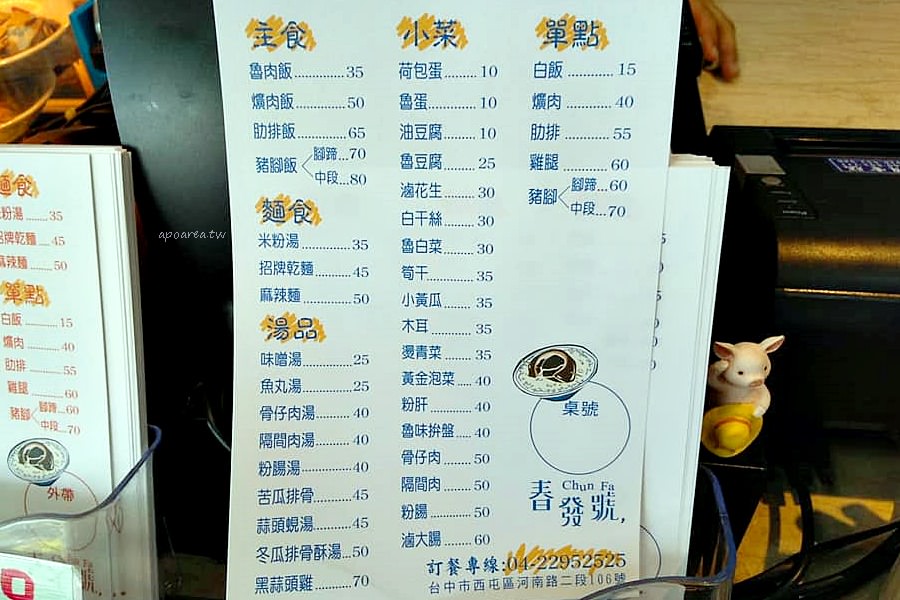 主食
魯肉飯..............35
爌肉飯..............50
肋排飯..............65
豬腳飯
腳蹄...70
中段...80
麵食
米粉湯..............35
招牌乾麵..........45
麻辣麵..............50
湯品
味噌湯..............25
魚丸湯..............25
骨仔肉湯..........40
隔間肉湯..........40
粉腸湯..............40
苦瓜排骨..........45
蒜頭蜆湯..........45
冬瓜排骨酥湯...50
黑蒜頭雞..........70
小菜
荷包蛋.........10
魯蛋.............10
油豆腐.........10
魯豆腐.........25
滷花生.........30
白干絲.........30
魯白菜.........30
筍干.............35
小黃瓜.........35
木耳.............35
燙青菜.........35
黃金泡菜....40
粉肝.............40
魯味拚盤....40
骨仔肉.........50
隔間肉.........50
粉腸.............50
滷大腸.........60
單點
白飯...........15
爌肉...........40
肋排...........55
雞腿...........60
豬腳
腳蹄...60
中段...70
桌號
春發號,
Chun Fa
訂餐專線:04-22952525
台中市西屯區河南路二段106號
麵食
粉湯.......35
招牌乾麵...45
麻辣麵.......50
單點
白飯...........15
爌肉...........40
肋排...........55
雞腿...........60
豬腳
腳蹄...60
中段...70
外帶
apoarea.tw